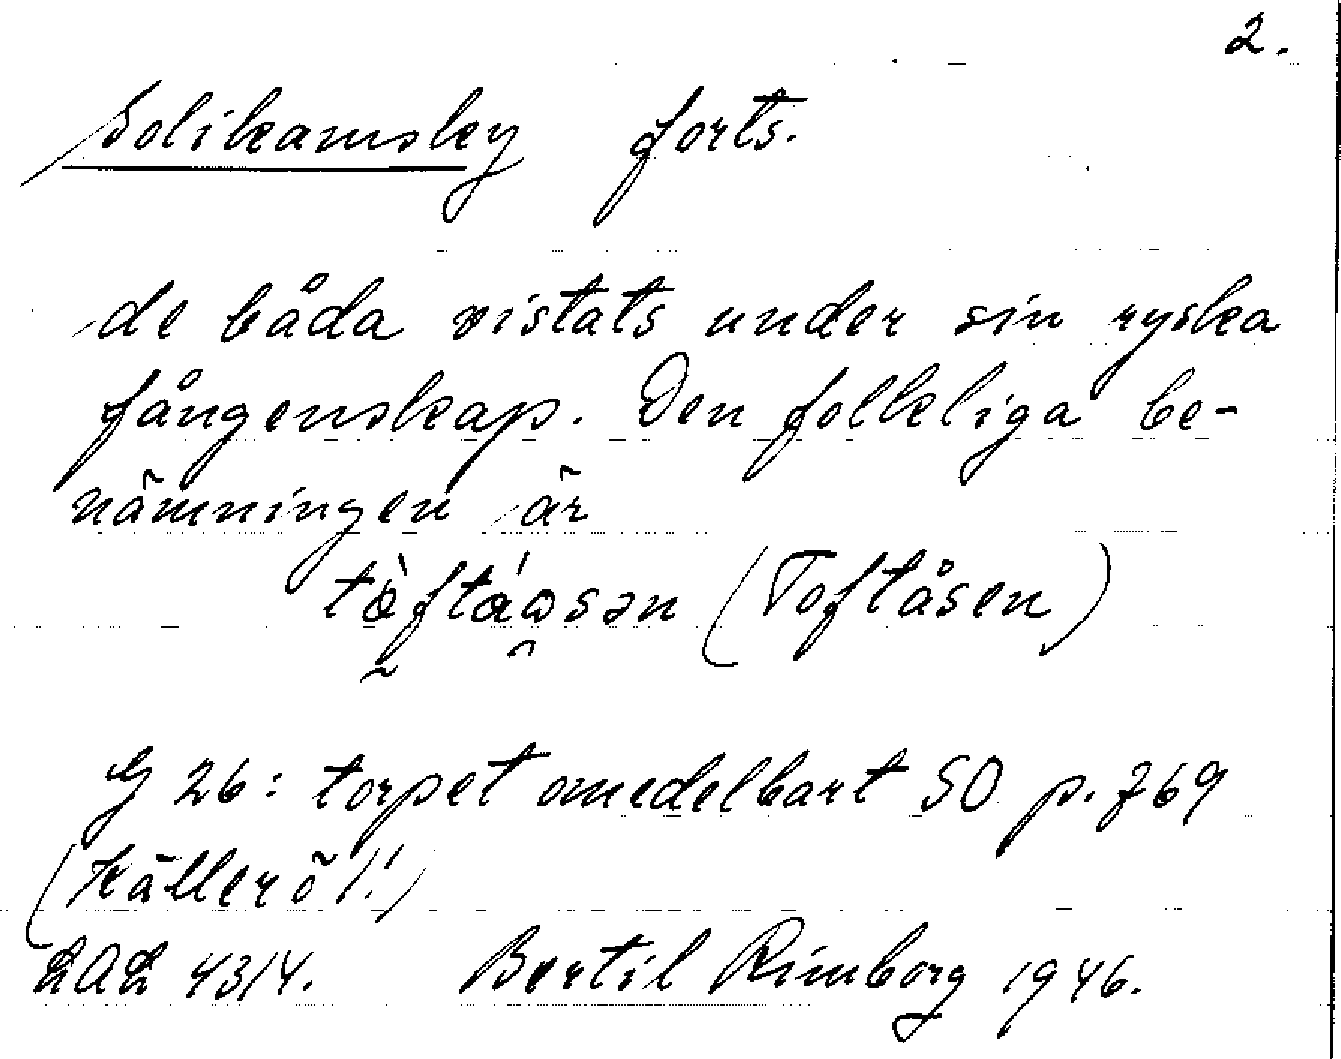 2.
Solikamsky forts.
de båda vistats under sin ryska
fångenskap. Den folkliga be-
nämningen är
tòftáɷsən (Toftåsen)
G 26: torpet omedelbart SO p. 769
(Källerö!!)
LAL 4314. Bertil Rimborg 1946.